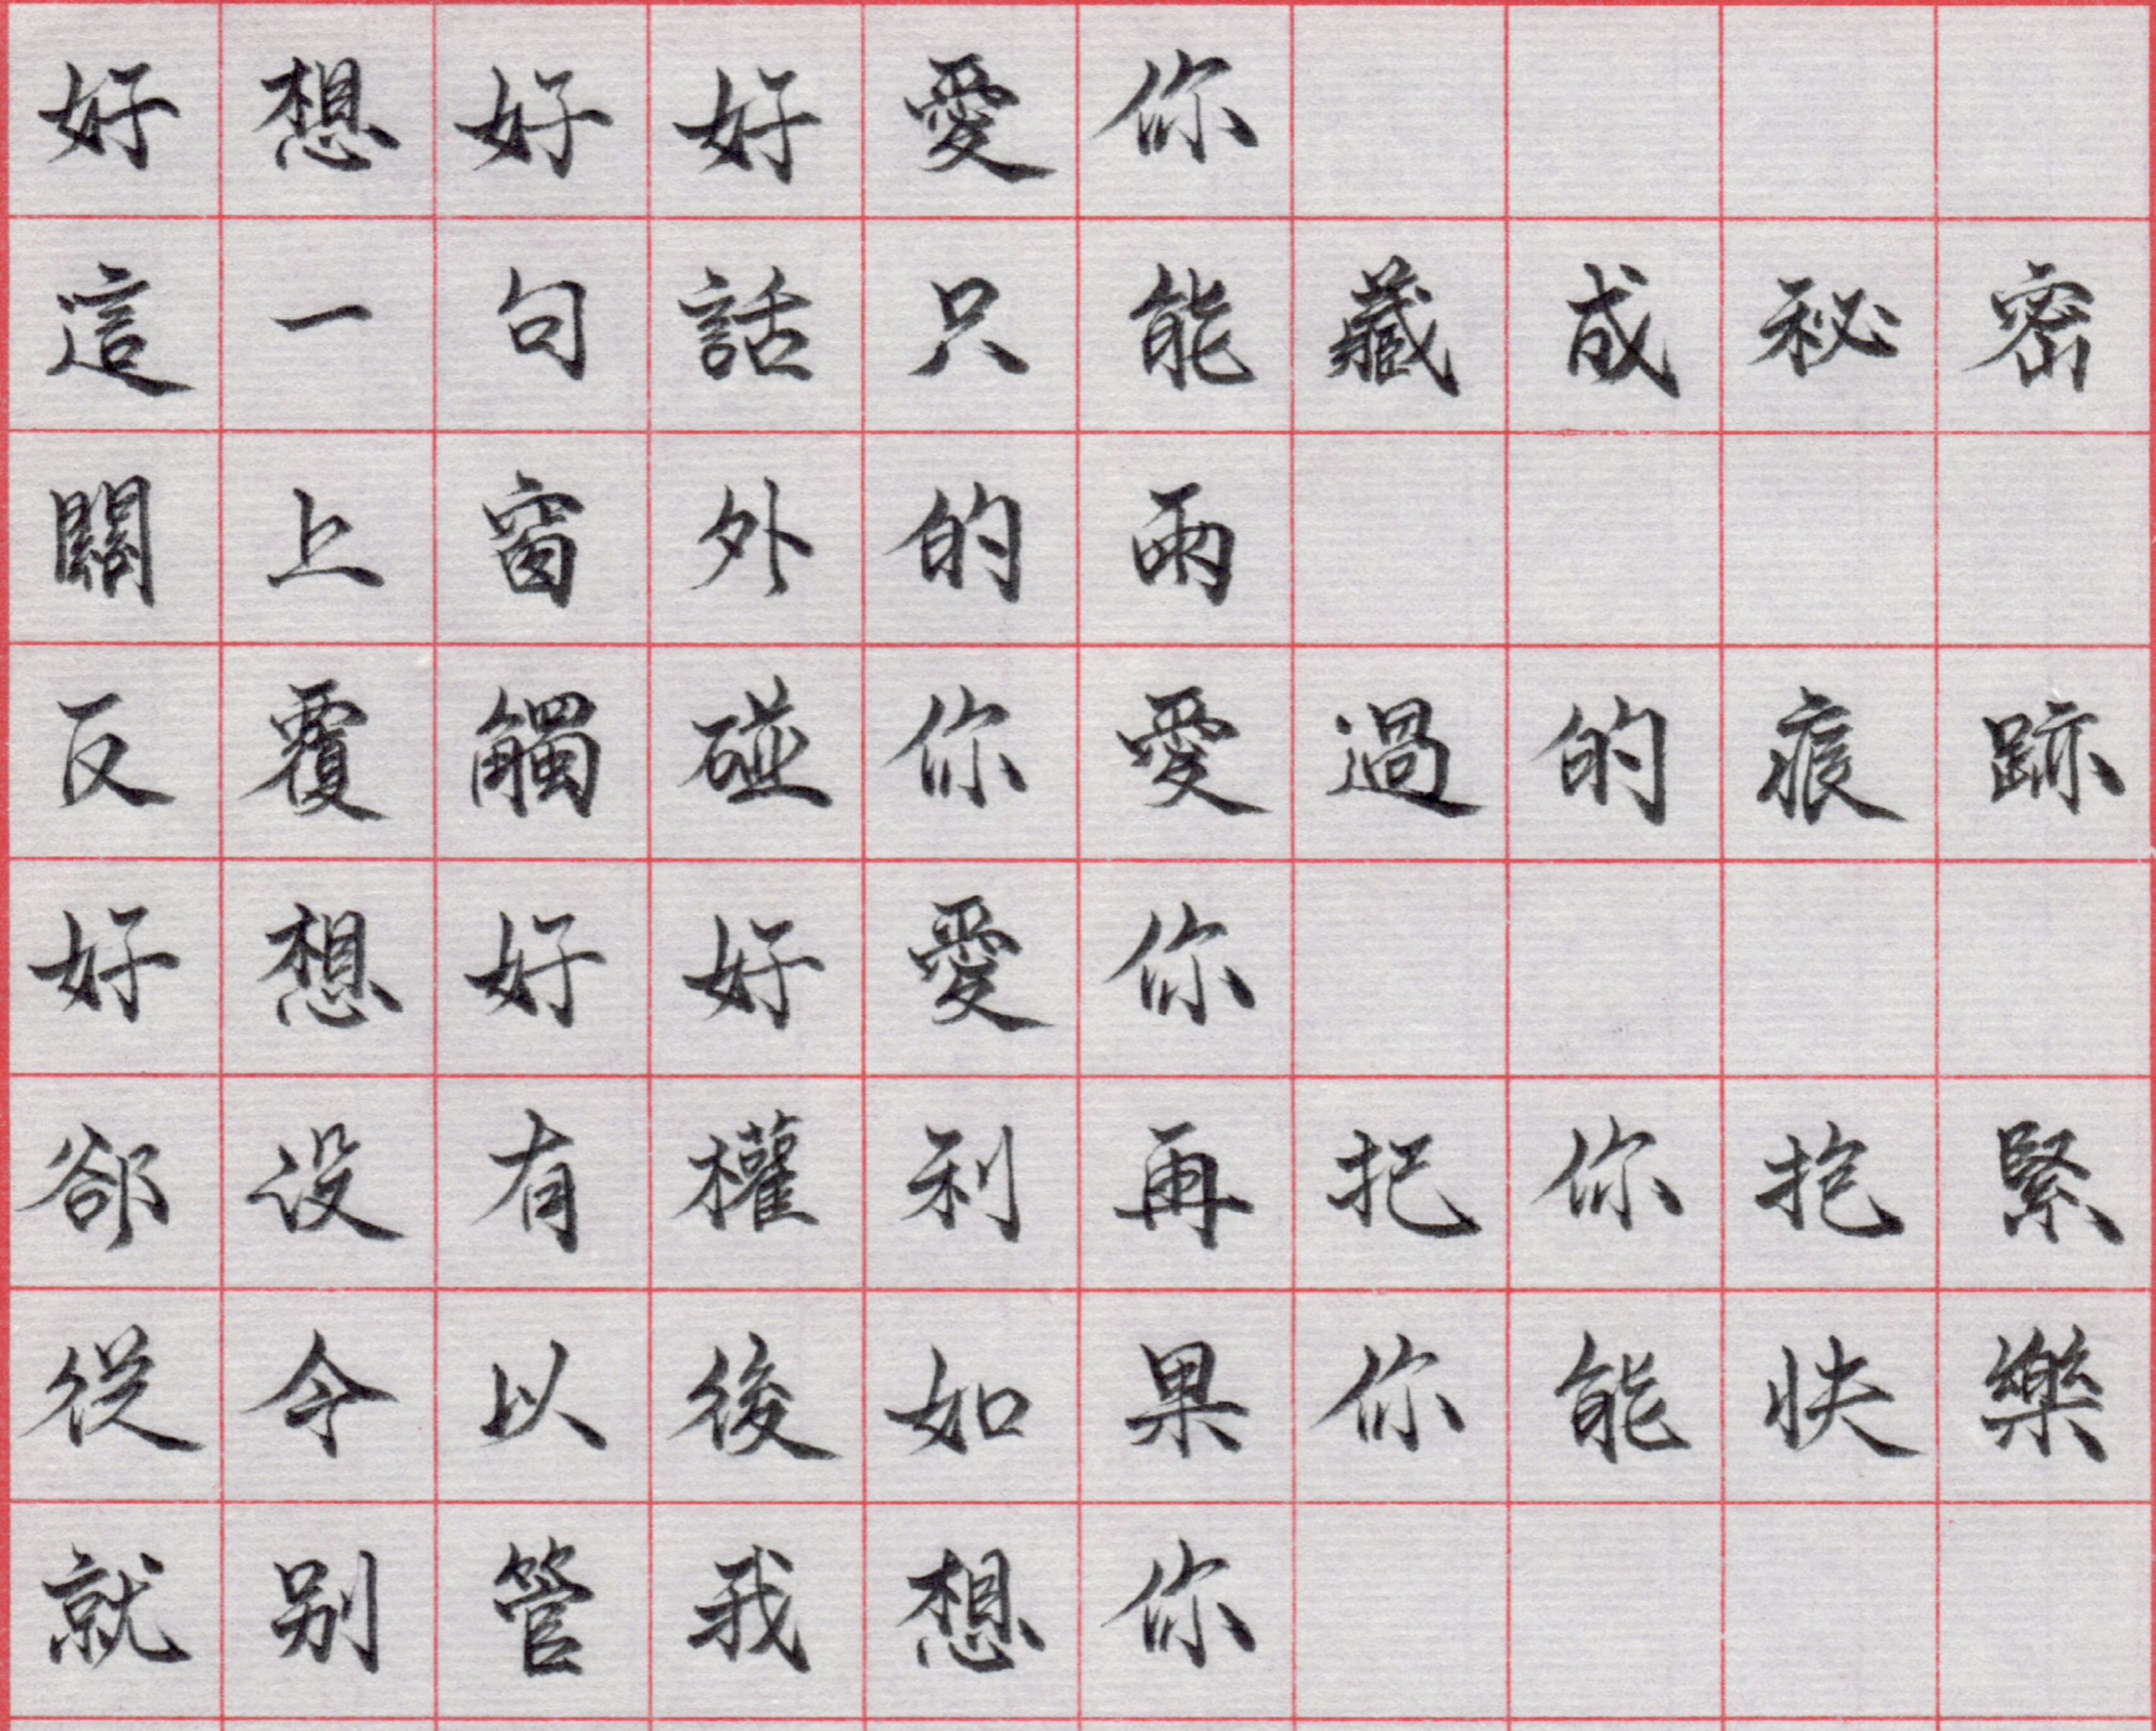 好想好好愛你
這一句話只能藏成秘密
關上窗外的雨
反覆觸碰你愛過的痕跡
好想好好愛你
卻沒有權利再把你抱緊
從今以後如果你能快樂
就別管我想你